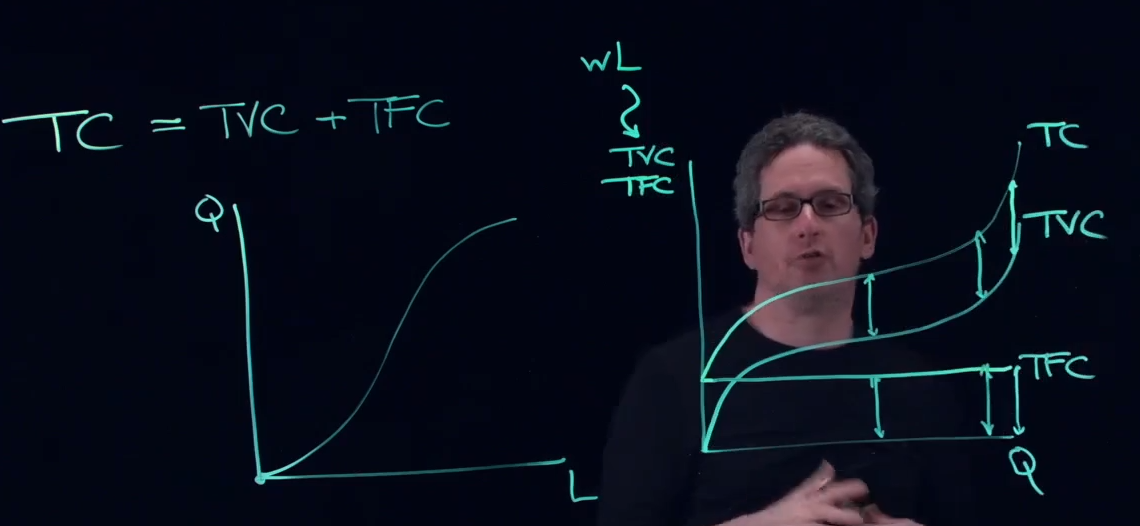 TC = TVC + TFC
Q
L
wL
TVC
TFC
TC
TVC
TFC
Q